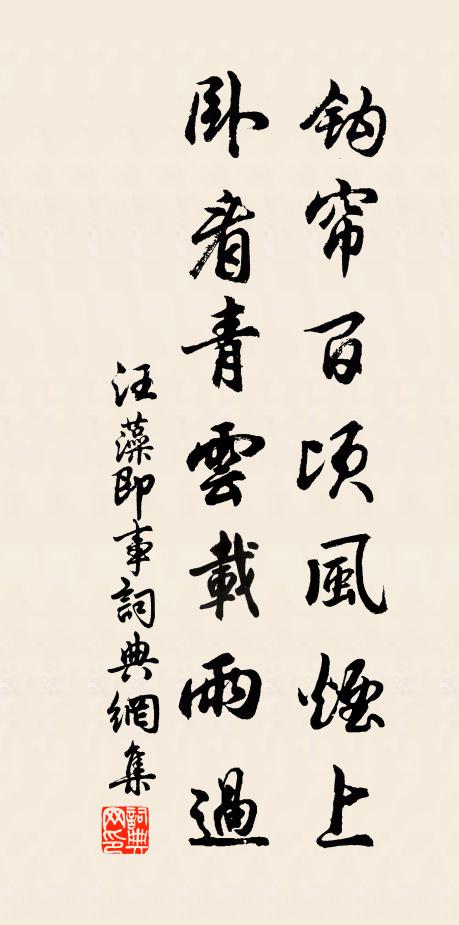 鈎帘百頃風煙上
卧看青雲載雨過
汪藻即事詞典網集
詞典网印